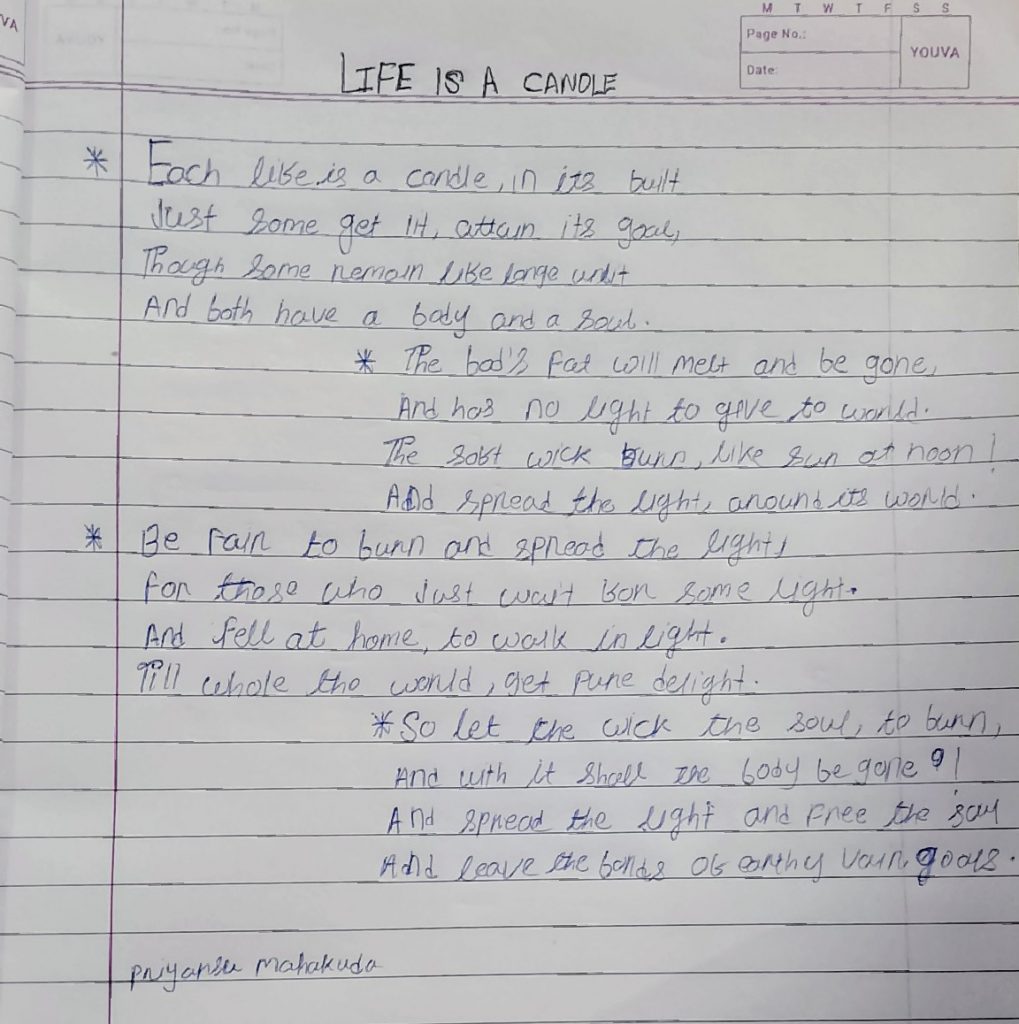 M T W T F S S
Page No.:
YOUVA
Date:
LIFE IS A CANDLE
* Each life is a candle, in its built
Just some get lit, attain its goal,
Though some remain like large unlit
And both have a body and a soul.
* The bod's Fat will melt and be gone,
And has no light to give to world.
The soft wick burn, like sun at noon!
And spread the light, around its world.
* Be Fain to burn and spread the light,
For those who Just wait for some light.
And fell at home, to walk in light.
Till whole the world, get pure delight.
* So let the wick the soul, to burn,
And with it shall the body be gone?!
And spread the light and Free the soul
And leave the bonds of earthy vain goals.
Priyansu Mahakuda